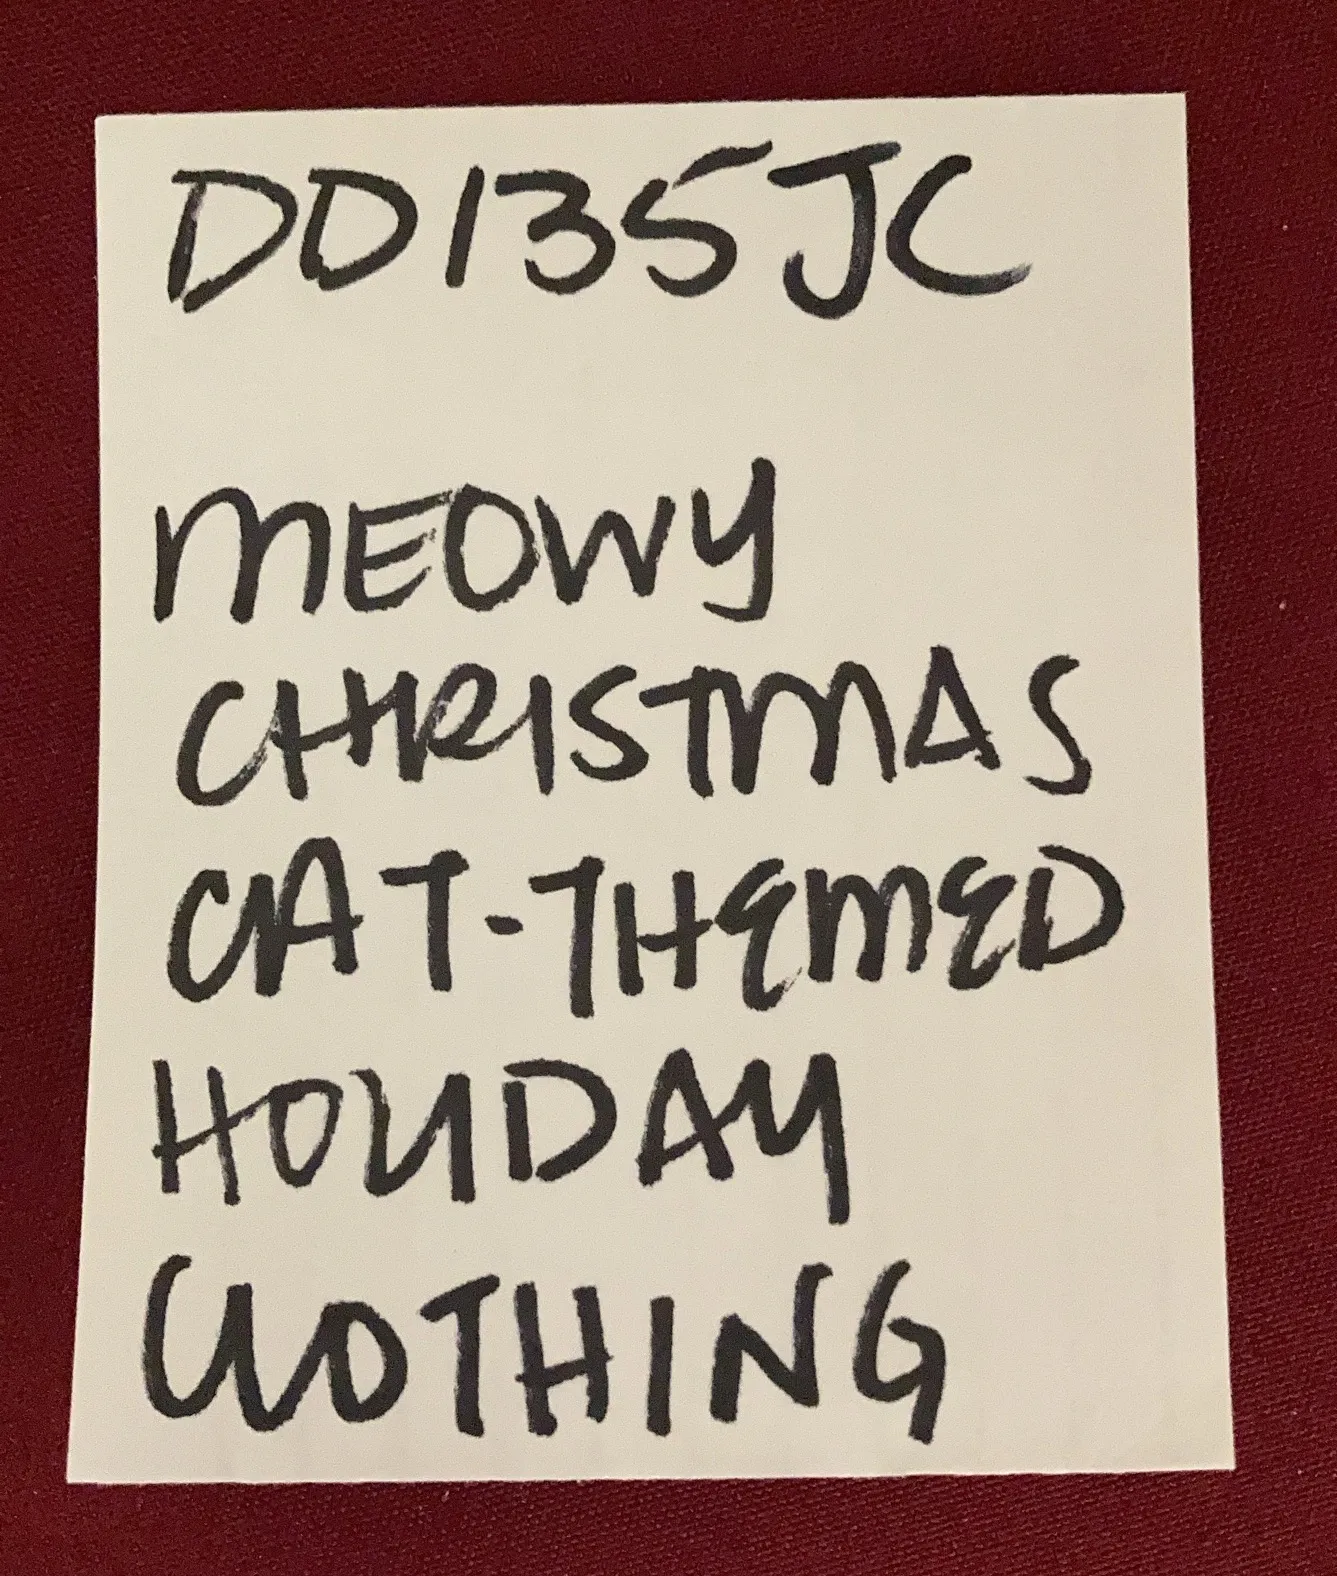 DD135JC
MEOWY
CHRISTMAS
CAT-THEMED
HOLIDAY
CLOTHING